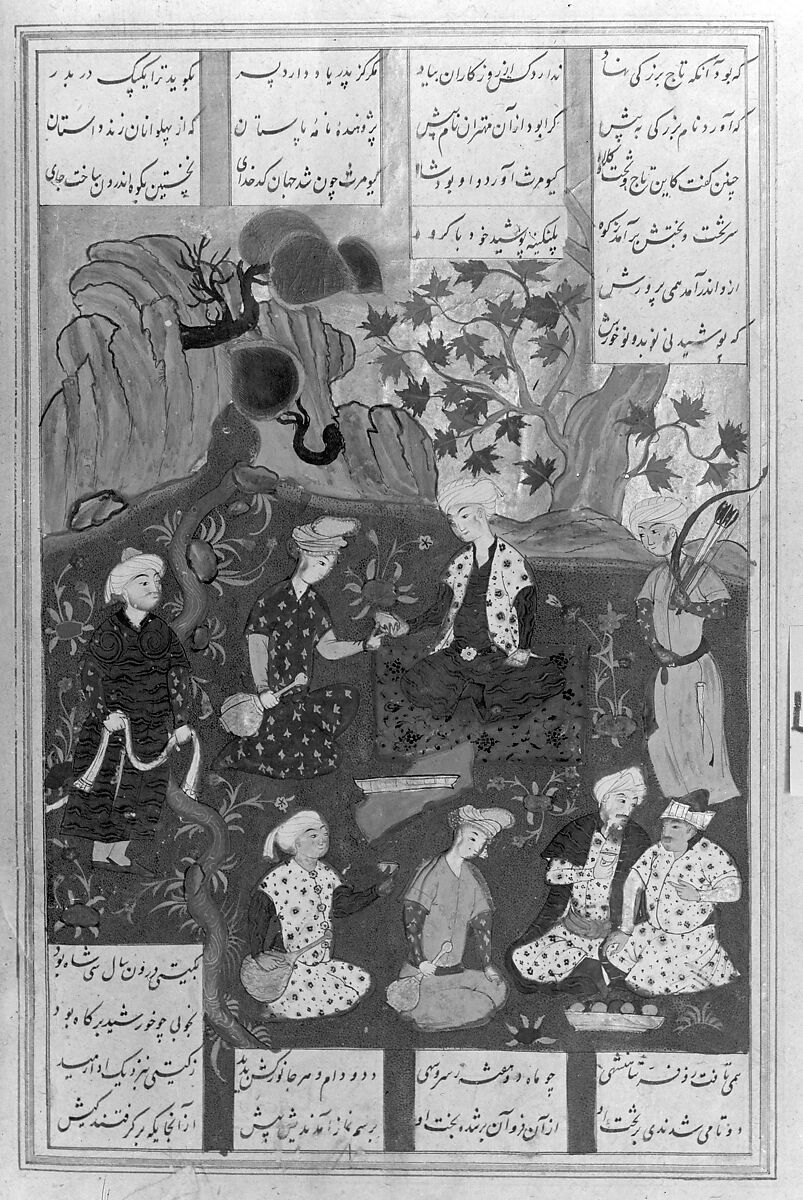 که بود آنکه تاج بزرگی نهاد ندارد کس از روزگاران بیاد مگر کز پدر یاد دارد پسر بگوید ترا یک بیک در بدر
که آورد نام بزرگی به پیش کرا بود از آن مهتران نام بیش پژوهندهٔ نامهٔ باستان که از پهلوانان زند داستان
چنین گفت کاین تاج و تخت کلاه کیومرث آورد و او بود شاه کیومرث چون شد جهان کدخدای نخستین بکوه اندرون ساخت جای
سر تخت و بختش برآمد ز کوه پلنگینه پوشید خود با گروه
ازو اندر آمد همی پرورش
که پوشیدنی نو بد و نو خورش
بگیتی درون سال سی شاه بود
بخوبی چو خورشید بر گاه بود
همی تافت زو فر شاهنشهی چو ماه دو هفته ز سرو سهی دد و دام و هر جانور کش بدید ز گیتی بنزدیک او آرمید
دوتا می شدندی بر تخت او از آن فر و آن بر شده بخت او برسم نماز آمدندیش پیش از آنجایگه برگرفتند کیش